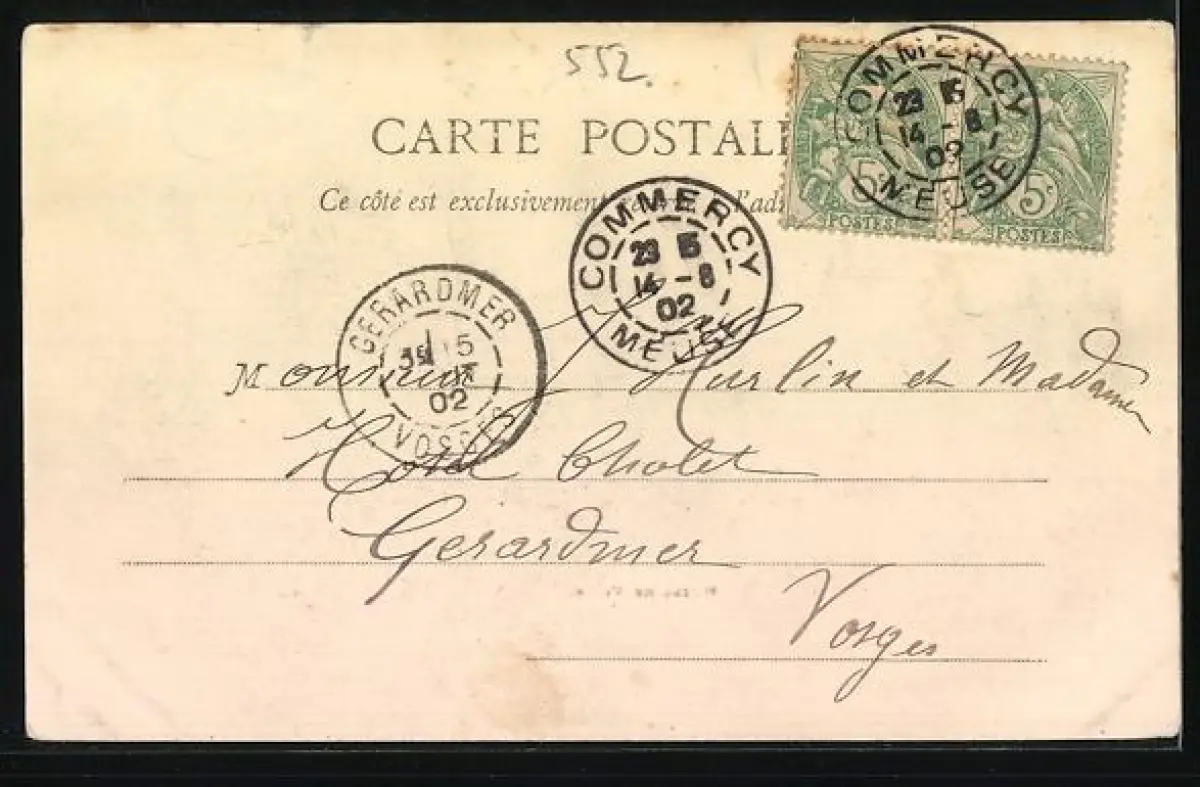 552.
CARTE POSTALE
Ce côté est exclusivement l'adr
COMMERCY
23 15
14 - 8
02
MEUSE
5 5
POSTES POSTES
COMMERCY
23 15
14 - 8
02
MEUSE
GERARDMER
15
02
VOSGES
Monsieur Hurlin et Madame
Hotel Cholet
Gerardmer
Vosges